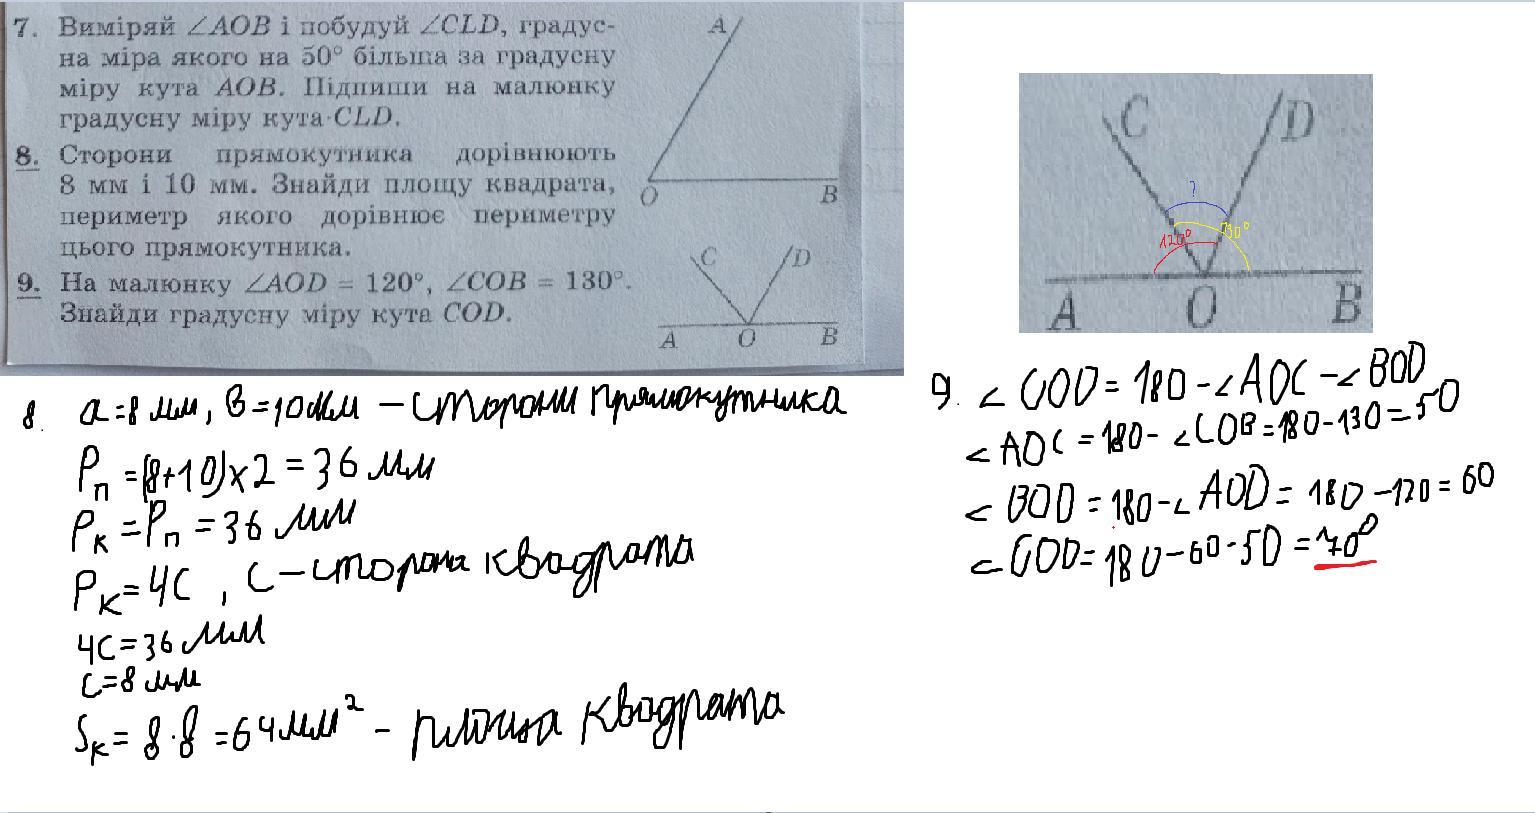 7. Виміряй ∠AOB і побудуй ∠CLD, градус-
на міра якого на 50° більша за градусну
міру кута AOB. Підпиши на малюнку
градусну міру кута CLD.
A
O
B
8. Сторони прямокутника дорівнюють
8 мм і 10 мм. Знайди площу квадрата,
периметр якого дорівнює периметру
цього прямокутника.
9. На малюнку ∠AOD = 120°, ∠COB = 130°.
Знайди градусну міру кута COD.
C
D
A
O
B
C
D
?
120°
130°
A
O
B
8. a=8 мм, в=10мм – сторони прямокутника
Pп =(8+10)×2 = 36 мм
Pк =Pп = 36 мм
Pк=4с , с – сторона квадрата
4с=36 мм
с=8 мм
Sк= 8·8 =64мм² – площа квадрата
9. ∠COD = 180 - ∠AOC - ∠BOD
∠AOC = 180 - ∠COB = 180 - 130 = 50
∠BOD = 180 - ∠AOD = 180 - 120 = 60
∠COD = 180 - 60 - 50 = 70°